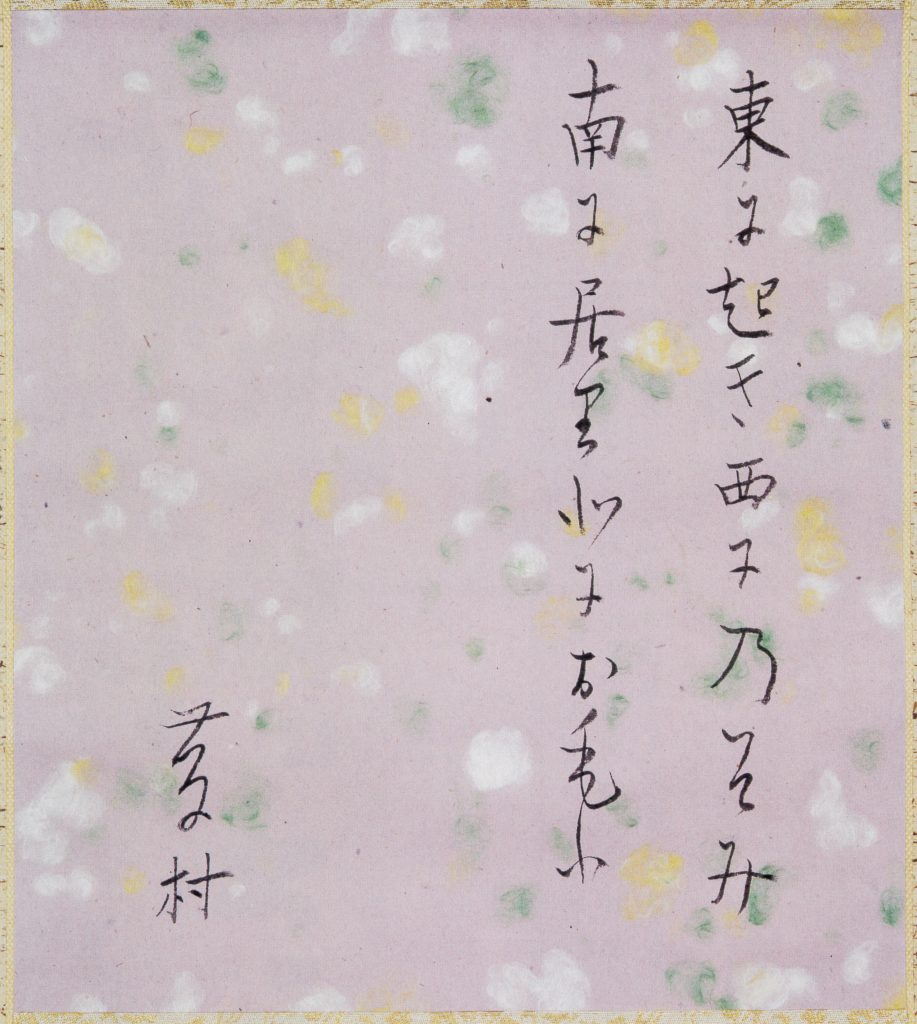 東に起き西にのそみ
南に居り北におもふ
藤村